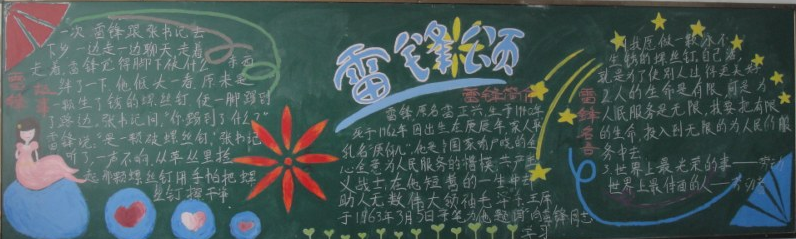 雷锋颂
雷锋故事
一次,雷锋跟张书记去
下乡一边走一边聊天,走着
走着,雷锋觉得脚下被什么东西
绊了一下,他低头一看,原来是
一颗生了锈的螺丝钉,使一脚踢到
了路边,张书记问:"你踢到了什么?"
雷锋说:"是一颗破螺丝钉。"张书记
听了一声不响,从草丛里捡
起那颗螺丝钉用手帕把螺
丝钉擦干净
雷锋简介
雷锋原名雷正兴,生于
死于1962年因出生在庚辰年,家人
乳名"庚伢儿",他是
心全意为人民服务的楷模,共产主
义战士,在他短暂的一生中
助人无数,伟大领袖毛泽东主席
于1963年3月5日亲笔为他题词"向雷锋同志
学习
雷锋名言
1我愿做一颗永不
生锈的螺丝钉,自己活着
就是为了使别人过得更美好
2人的生命是有限,可是为
人民服务是无限,我要把有限
的生命,投入到无限的为人民们服
务中去
3世界上最光荣的事——劳动
世界上最伟大的人——劳动者